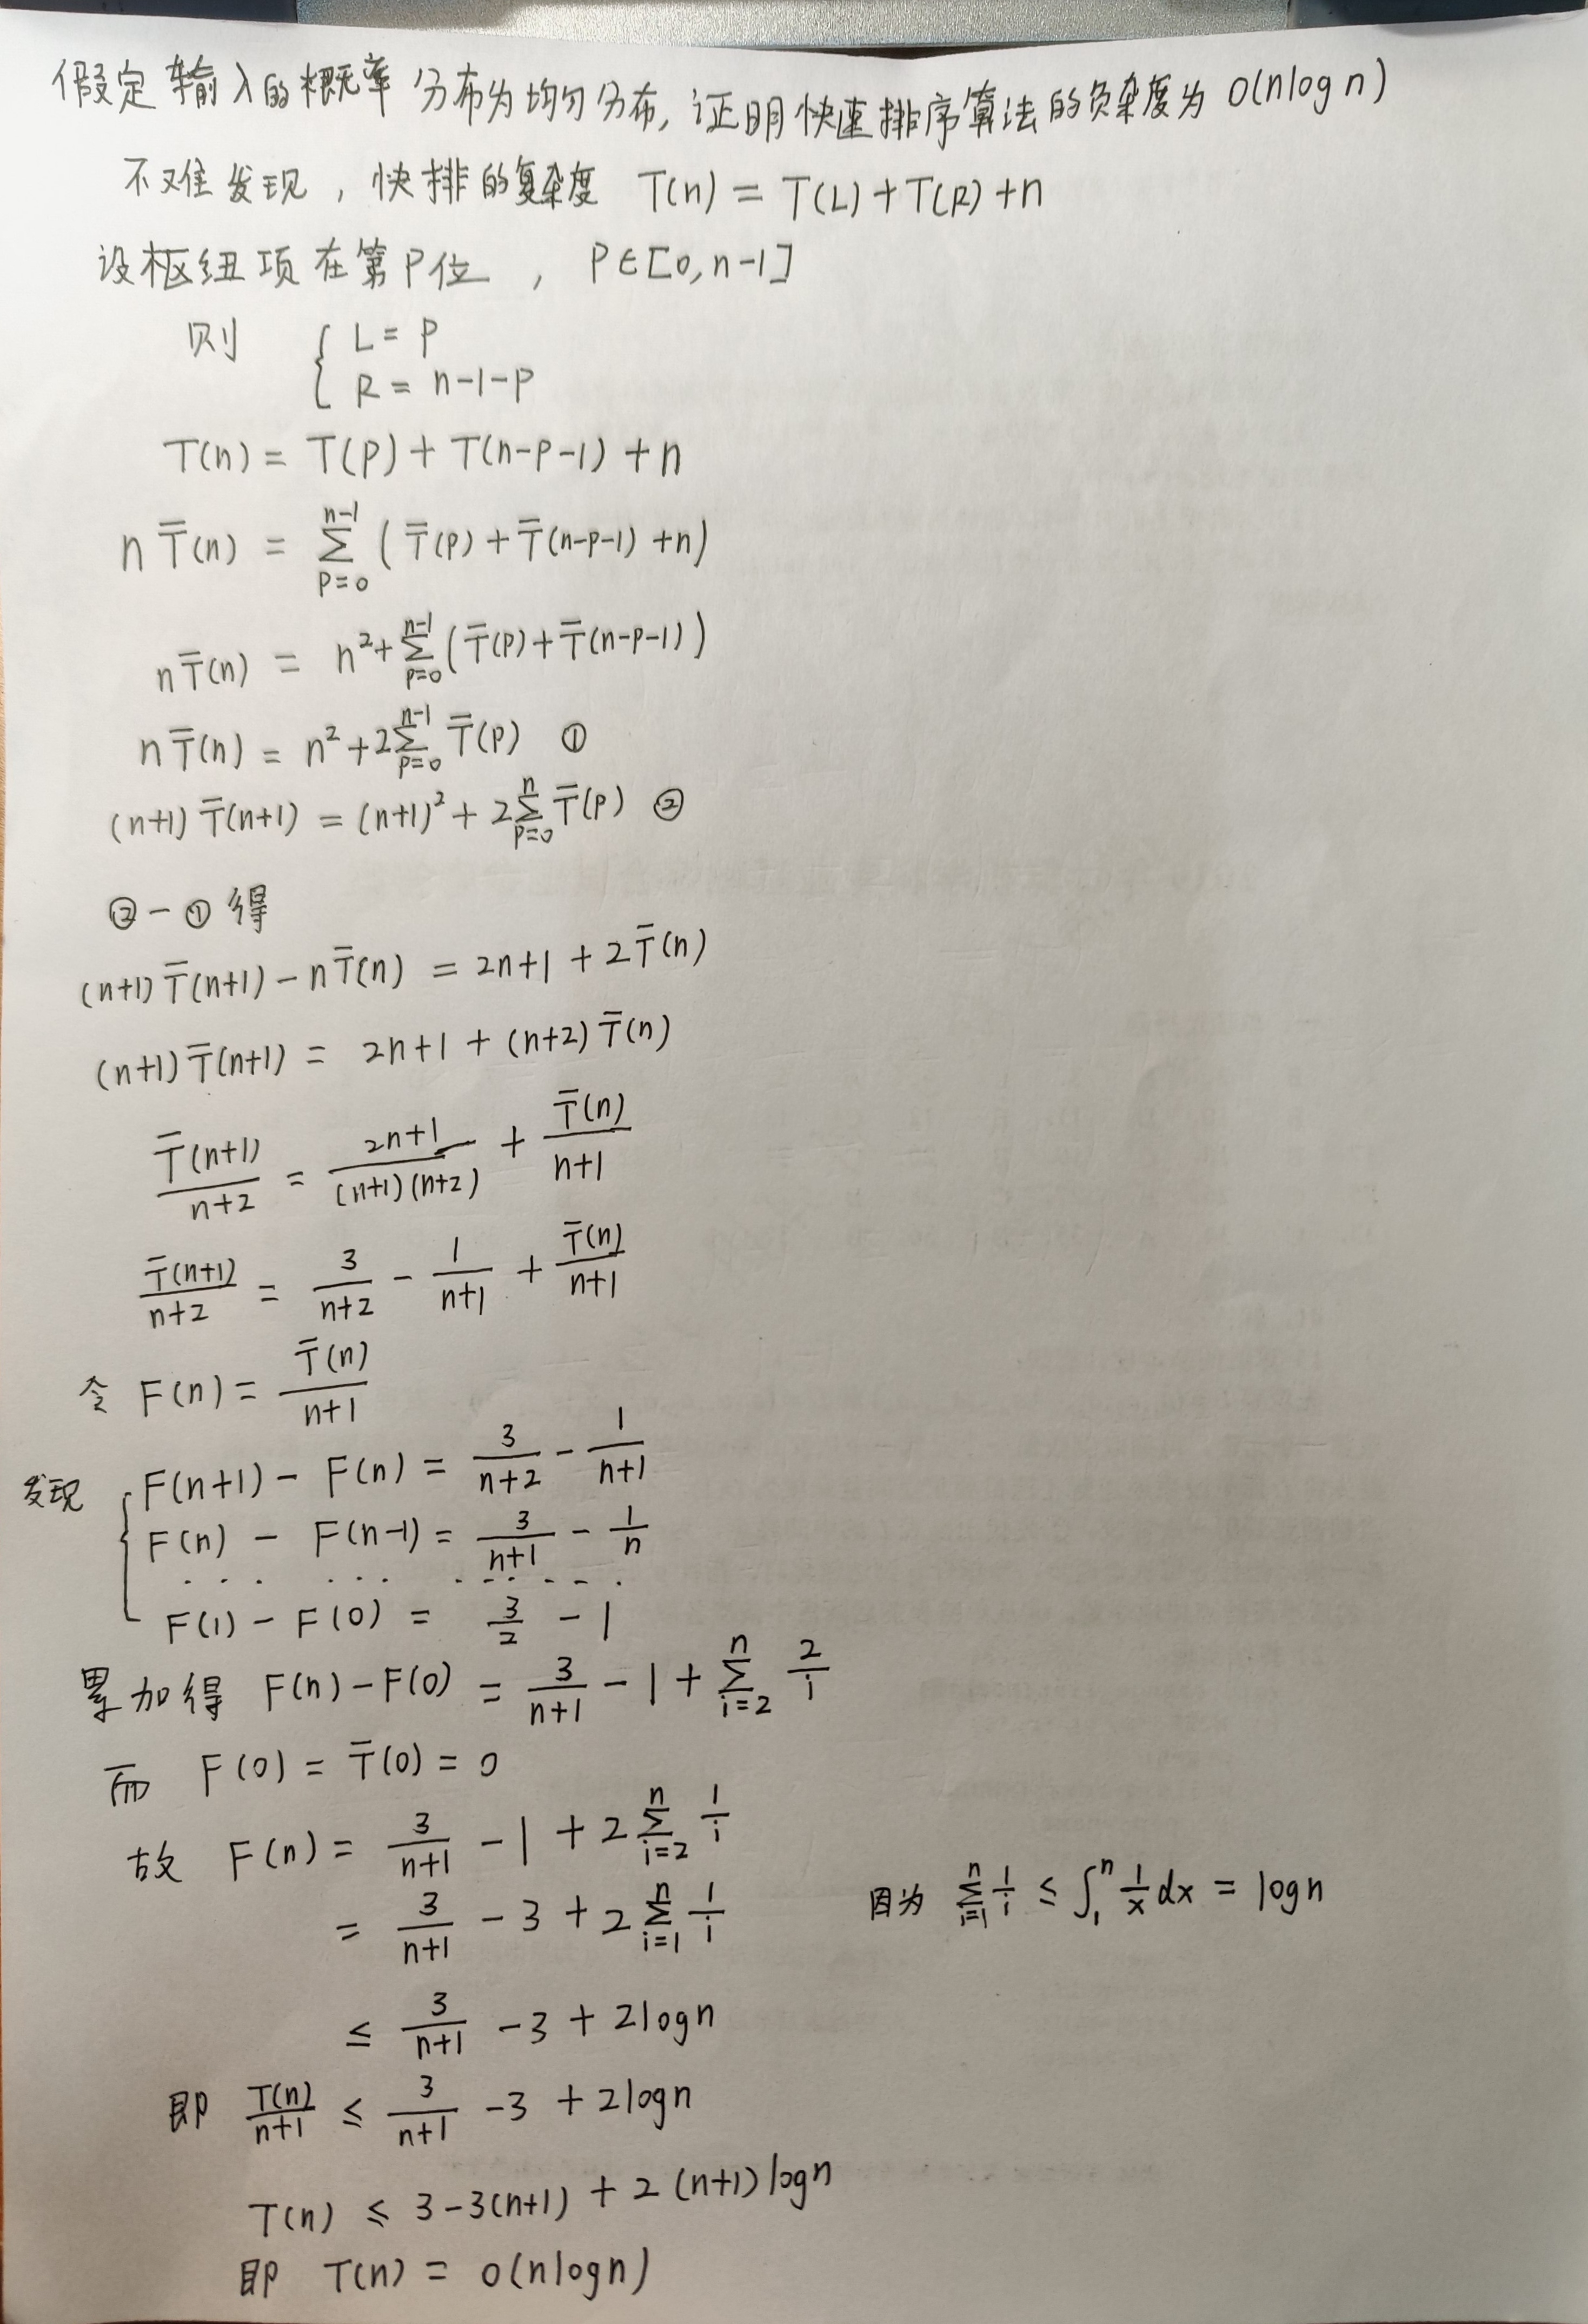 假定输入的概率分布为均匀分布, 证明快速排序算法的复杂度为 O(nlogn)
不难发现, 快排的复杂度 T(n) = T(L) + T(R) + n
设枢纽项在第P位, P∈[0, n-1]
则 { L = P
R = n-1-P
T(n) = T(P) + T(n-P-1) + n
n T̄(n) = Σ_{P=0}^{n-1} ( T̄(P) + T̄(n-P-1) + n)
n T̄(n) = n² + Σ_{P=0}^{n-1} ( T̄(P) + T̄(n-P-1) )
n T̄(n) = n² + 2 Σ_{P=0}^{n-1} T̄(P) ①
(n+1) T̄(n+1) = (n+1)² + 2 Σ_{P=0}^{n} T̄(P) ②
② - ① 得
(n+1) T̄(n+1) - n T̄(n) = 2n+1 + 2 T̄(n)
(n+1) T̄(n+1) = 2n+1 + (n+2) T̄(n)
T̄(n+1)/(n+2) = (2n+1)/((n+1)(n+2)) + T̄(n)/(n+1)
T̄(n+1)/(n+2) = 3/(n+2) - 1/(n+1) + T̄(n)/(n+1)
令 F(n) = T̄(n)/(n+1)
发现 { F(n+1) - F(n) = 3/(n+2) - 1/(n+1)
F(n) - F(n-1) = 3/(n+1) - 1/n
... ... ......
F(1) - F(0) = 3/2 - 1
累加得 F(n) - F(0) = 3/(n+1) - 1 + Σ_{i=2}^{n} 2/i
而 F(0) = T̄(0) = 0
故 F(n) = 3/(n+1) - 1 + 2 Σ_{i=2}^{n} 1/i
= 3/(n+1) - 3 + 2 Σ_{i=1}^{n} 1/i 因为 Σ_{i=1}^{n} 1/i ≤ ∫₁ⁿ 1/x dx = logn
≤ 3/(n+1) - 3 + 2logn
即 T(n)/(n+1) ≤ 3/(n+1) - 3 + 2logn
T(n) ≤ 3 - 3(n+1) + 2(n+1)logn
即 T(n) = O(nlogn)